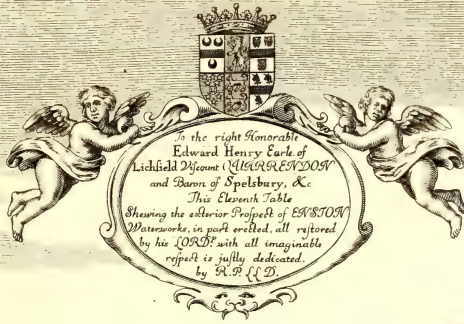 To the right Honorable
Edward Henry Earle of
Lichfield Viscount QUARRENDON
and Baron of Spelsbury, &c
This Eleventh Table
Shewing the exterior Prospect of ENSTON
Waterworks, in part erected, all restored
by his LORDP. with all imaginable
respect is justly dedicated.
by R. P. LL D.